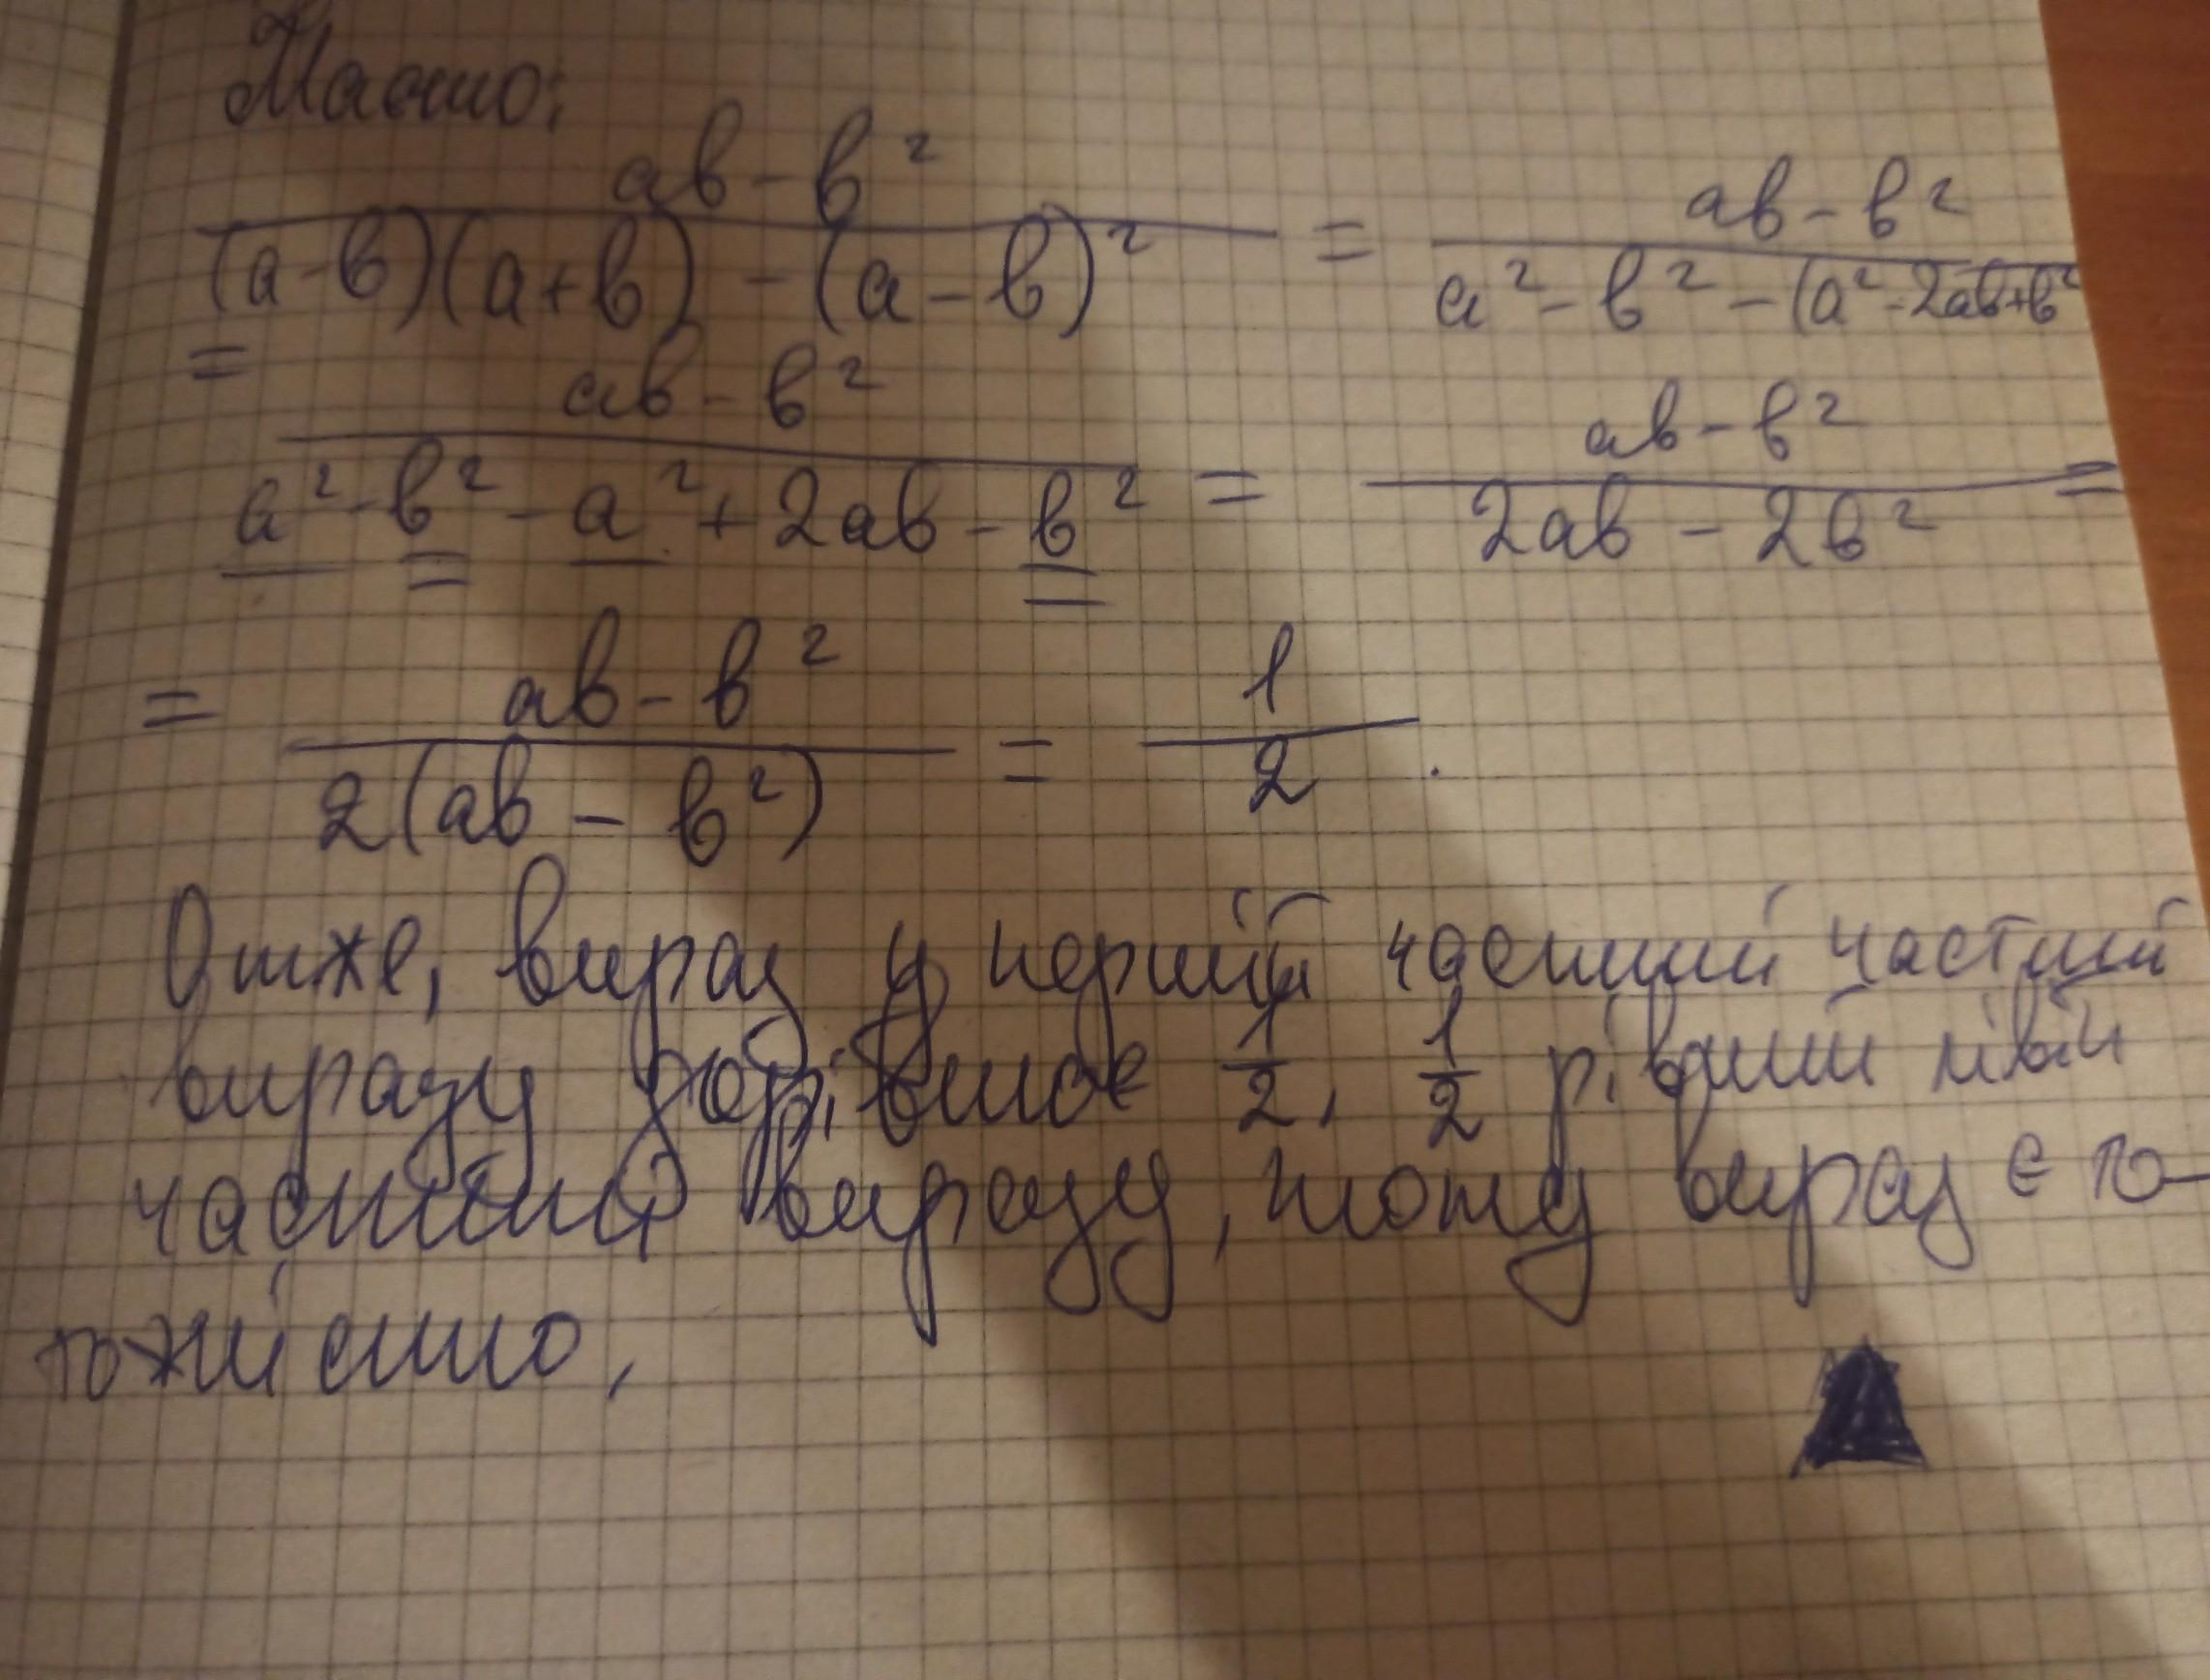 Маємо:
ab - b² / (a - b)(a + b) - (a - b)² = ab - b² / a² - b² - (a² - 2ab + b²
= ab - b² / a² - b² - a² + 2ab - b² = ab - b² / 2ab - 2b² =
= ab - b² / 2(ab - b²) = 1/2.
Отже, вираз у першій частині частині
виразу дорівнює 1/2, 1/2 рівний лівій
частині виразу, тому вираз є то-
тожністю,